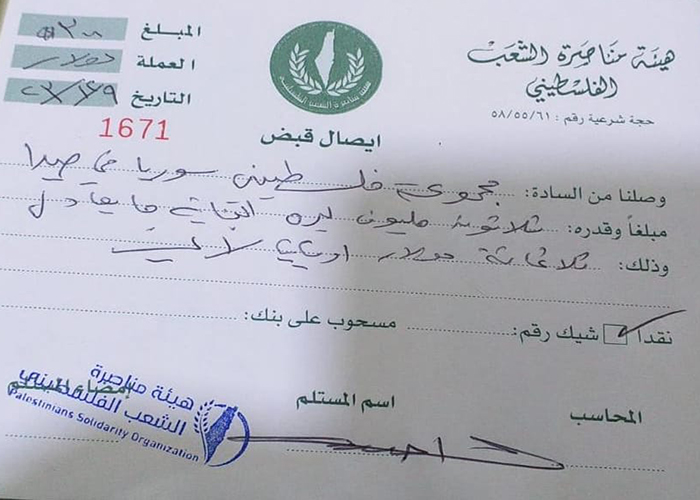 هيئة مناصرة الشعب
الفلسطيني
حجة شرعية رقم : ٥٨/٥٥/٦١
المبلغ $٣٠٠
العملة دولار
التاريخ
1671
هيئة مناصرة الشعب الفلسطيني
ايصال قبض
وصلنا من السادة: مجموعة فلسطيني سوريا في صيدا
مبلغاً وقدره: ثلاثون مليون ليرة لبنانية ما يعادل
وذلك: ثلاثماية دولار
نقداً شيك رقم: مسحوب على بنك:
المحاسب اسم المستلم إمضاء المستلم
هيئة مناصرة
الشعب الفلسطيني
Palestinians Solidarity Organization